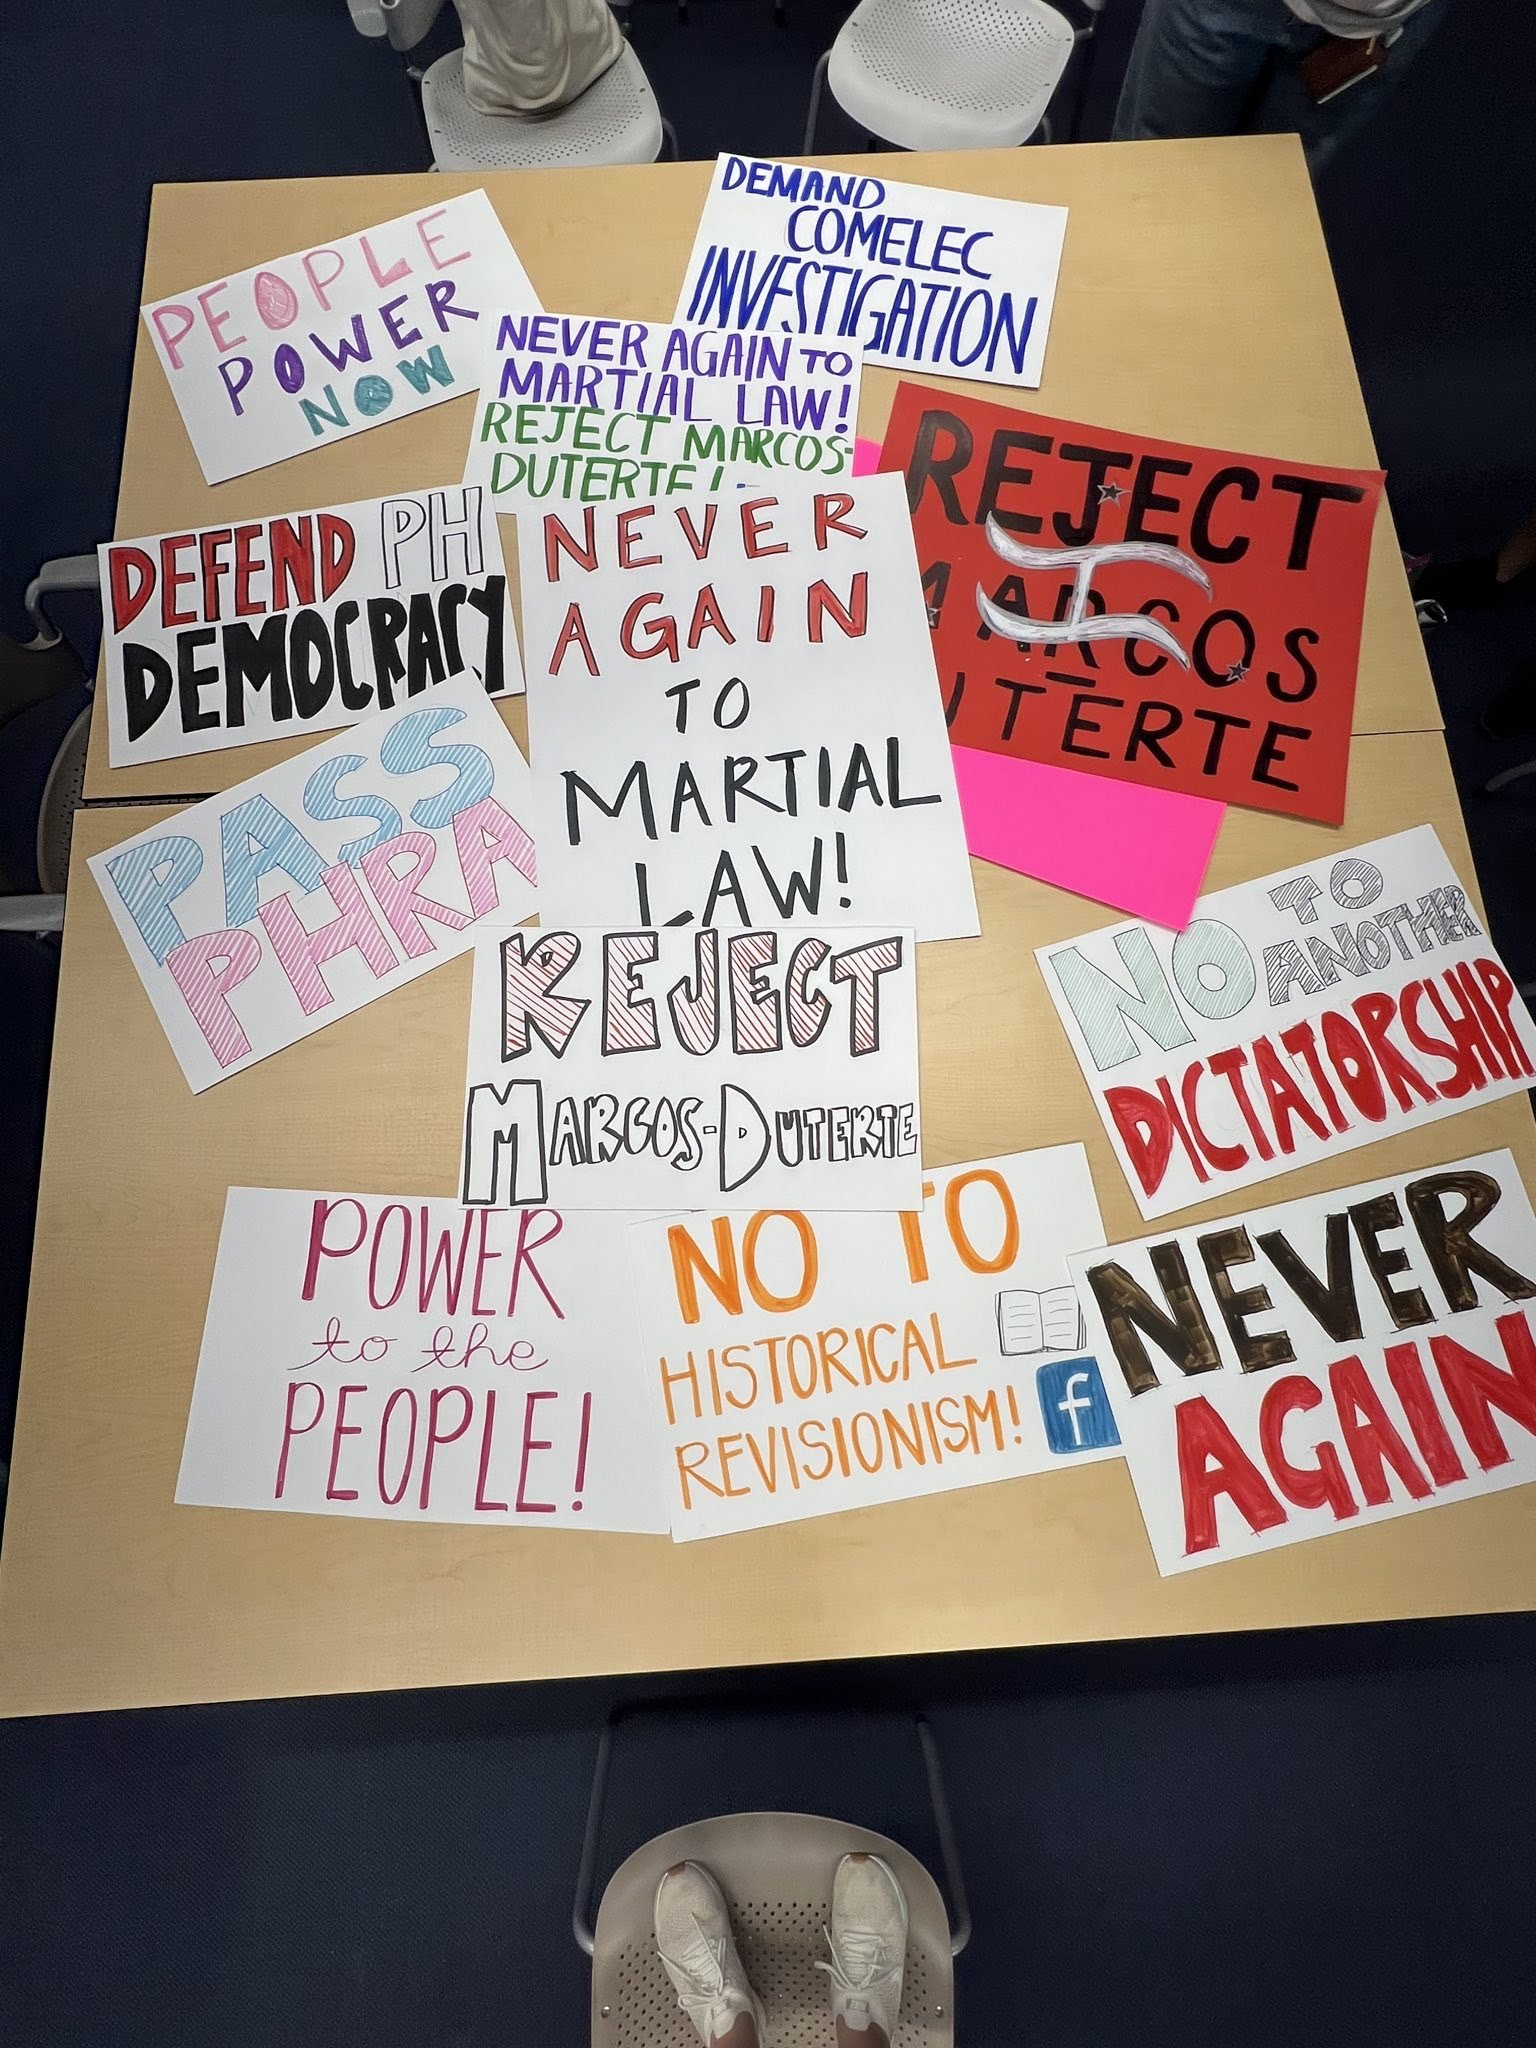 PEOPLE
POWER
NOW
DEMAND
COMELEC
INVESTIGATION
NEVER AGAIN TO
MARTIAL LAW!
REJECT MARCOS-
DUTERTE!
REJECT
MARCOS
UTERTE
DEFEND PH
DEMOCRACY
NEVER
AGAIN
TO
MARTIAL
LAW!
PASS
PHRA
REJECT
MARCOS-DUTERTE
NO TO
ANOTHER
DICTATORSHIP
POWER
to the
PEOPLE!
NO TO
HISTORICAL
REVISIONISM!
f
NEVER
AGAIN